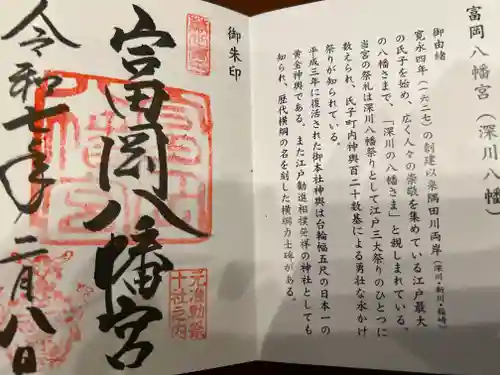 富岡八幡宮(深川八幡)
御由緒
寛永四年(一六二七)の創建以来隅田川両岸(深川・新川・箱崎)
の氏子を始め、広く人々の崇敬を集めている江戸最大
の八幡さまで、「深川の八幡さま」と親しまれている。
当宮の祭礼は深川八幡祭りとして江戸三大祭りのひとつに
数えられ、氏子町内神輿百二十数基による勇壮な水かけ
祭りが知られている。
平成三年に復活された御本社神輿は台輪幅五尺の日本一の
黄金神輿である。また江戸勧進相撲発祥の神社としても
知られ、歴代横綱の名を刻した横綱力士碑がある。
御朱印
元准勅祭
十社之内
富岡八幡宮
令和七年二月八日